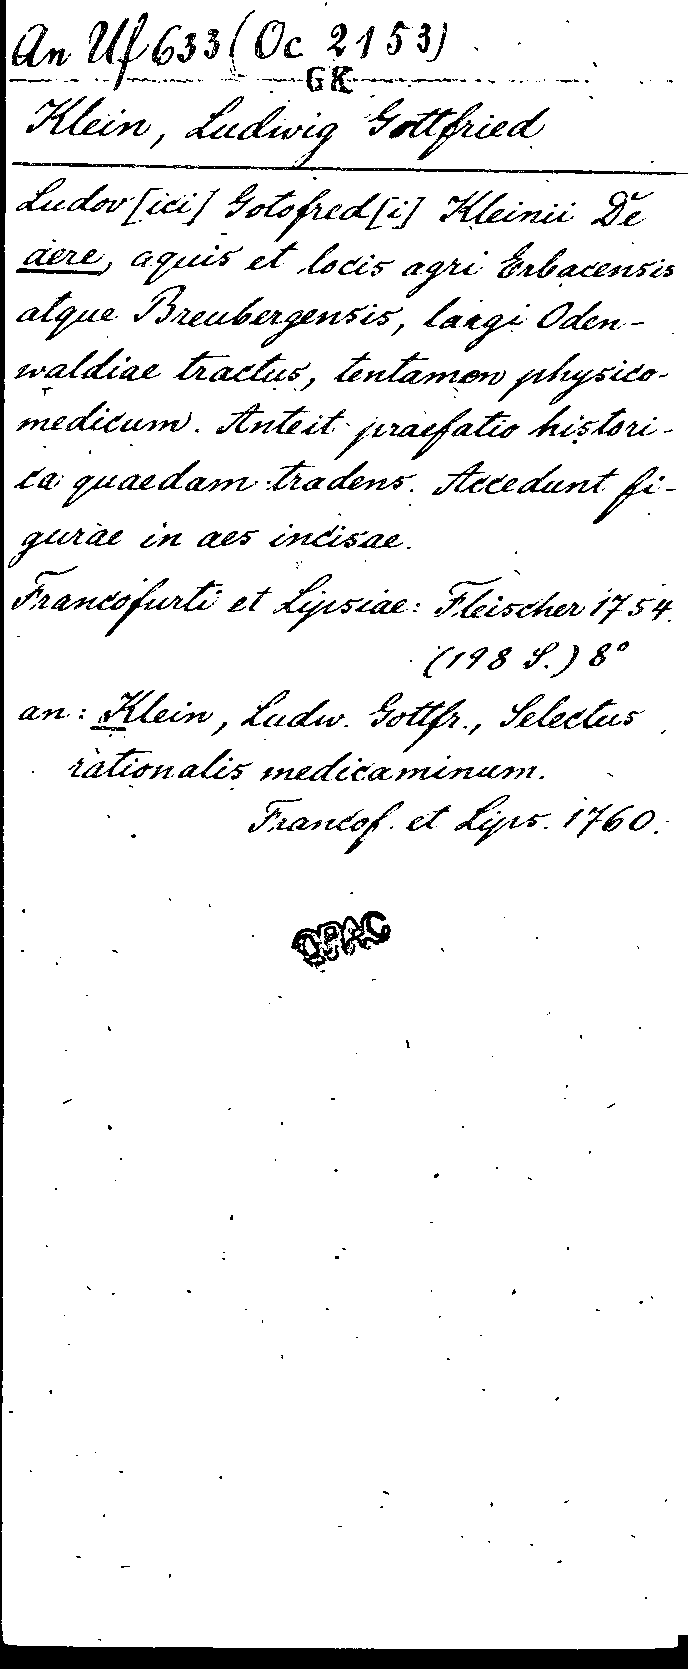 An Uf 633 (Oc 2153)
GK
Klein, Ludwig Gottfried
Ludov[ici] Gotofred[i] Kleinii De
aere, aquis et locis agri Erbacensis
atque Breubergensis, largi Oden-
waldiae tractus, tentamen physico-
medicum. Anteit praefatio histori-
ca quaedam tradens. Accedunt fi-
gurae in aes incisae.
Francofurti et Lipsiae: Fleischer 1754.
(198 S.) 8°
an: Klein, Ludw. Gottfr., Selectus
rationalis medicaminum.
Francof. et Lips. 1760.
OPAC